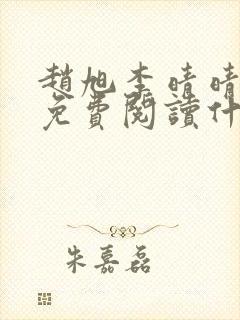 趙旭李晴晴
免費閱讀什
朱嘉磊